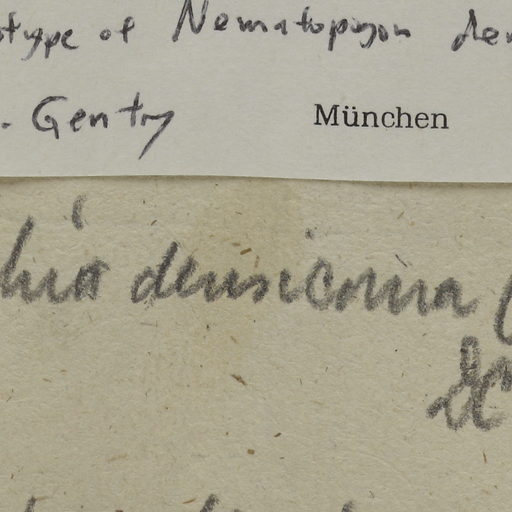 otype of Nematopogon den
. Gentry München
hia densicoma (
DC